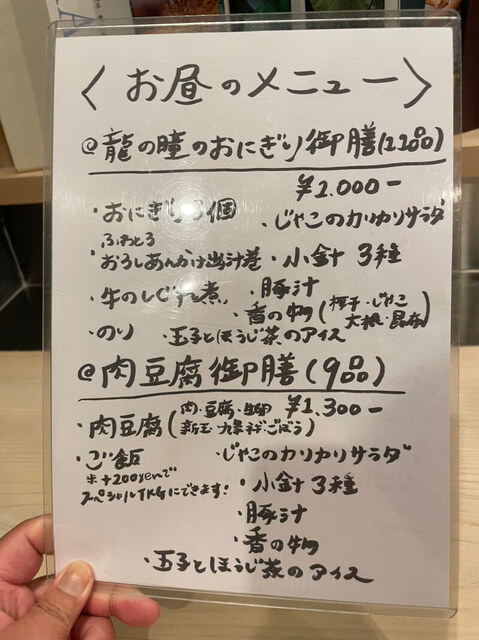 〈お昼のメニュー〉
@龍の瞳のおにぎり御膳(12品)
¥2.000-
・おにぎり2個 ・じゃこのカリカリサラダ
ふわとろ
・おろしあんかけ出汁巻 ・小鉢 3種
・牛のしぐれ煮 ・豚汁
・香の物(柚子・じゃこ 大根・昆布)
・のり ・玉子とほうじ茶のアイス
@肉豆腐御膳(9品)
¥1.300-
・肉豆腐(肉・豆腐・生卵 新玉・九条ネギ・ごぼう)
・ご飯 ・じゃこのカリカリサラダ
※+200yenで
スペシャルTKGにできます!
・小鉢 3種
・豚汁
・香の物
・玉子とほうじ茶のアイス